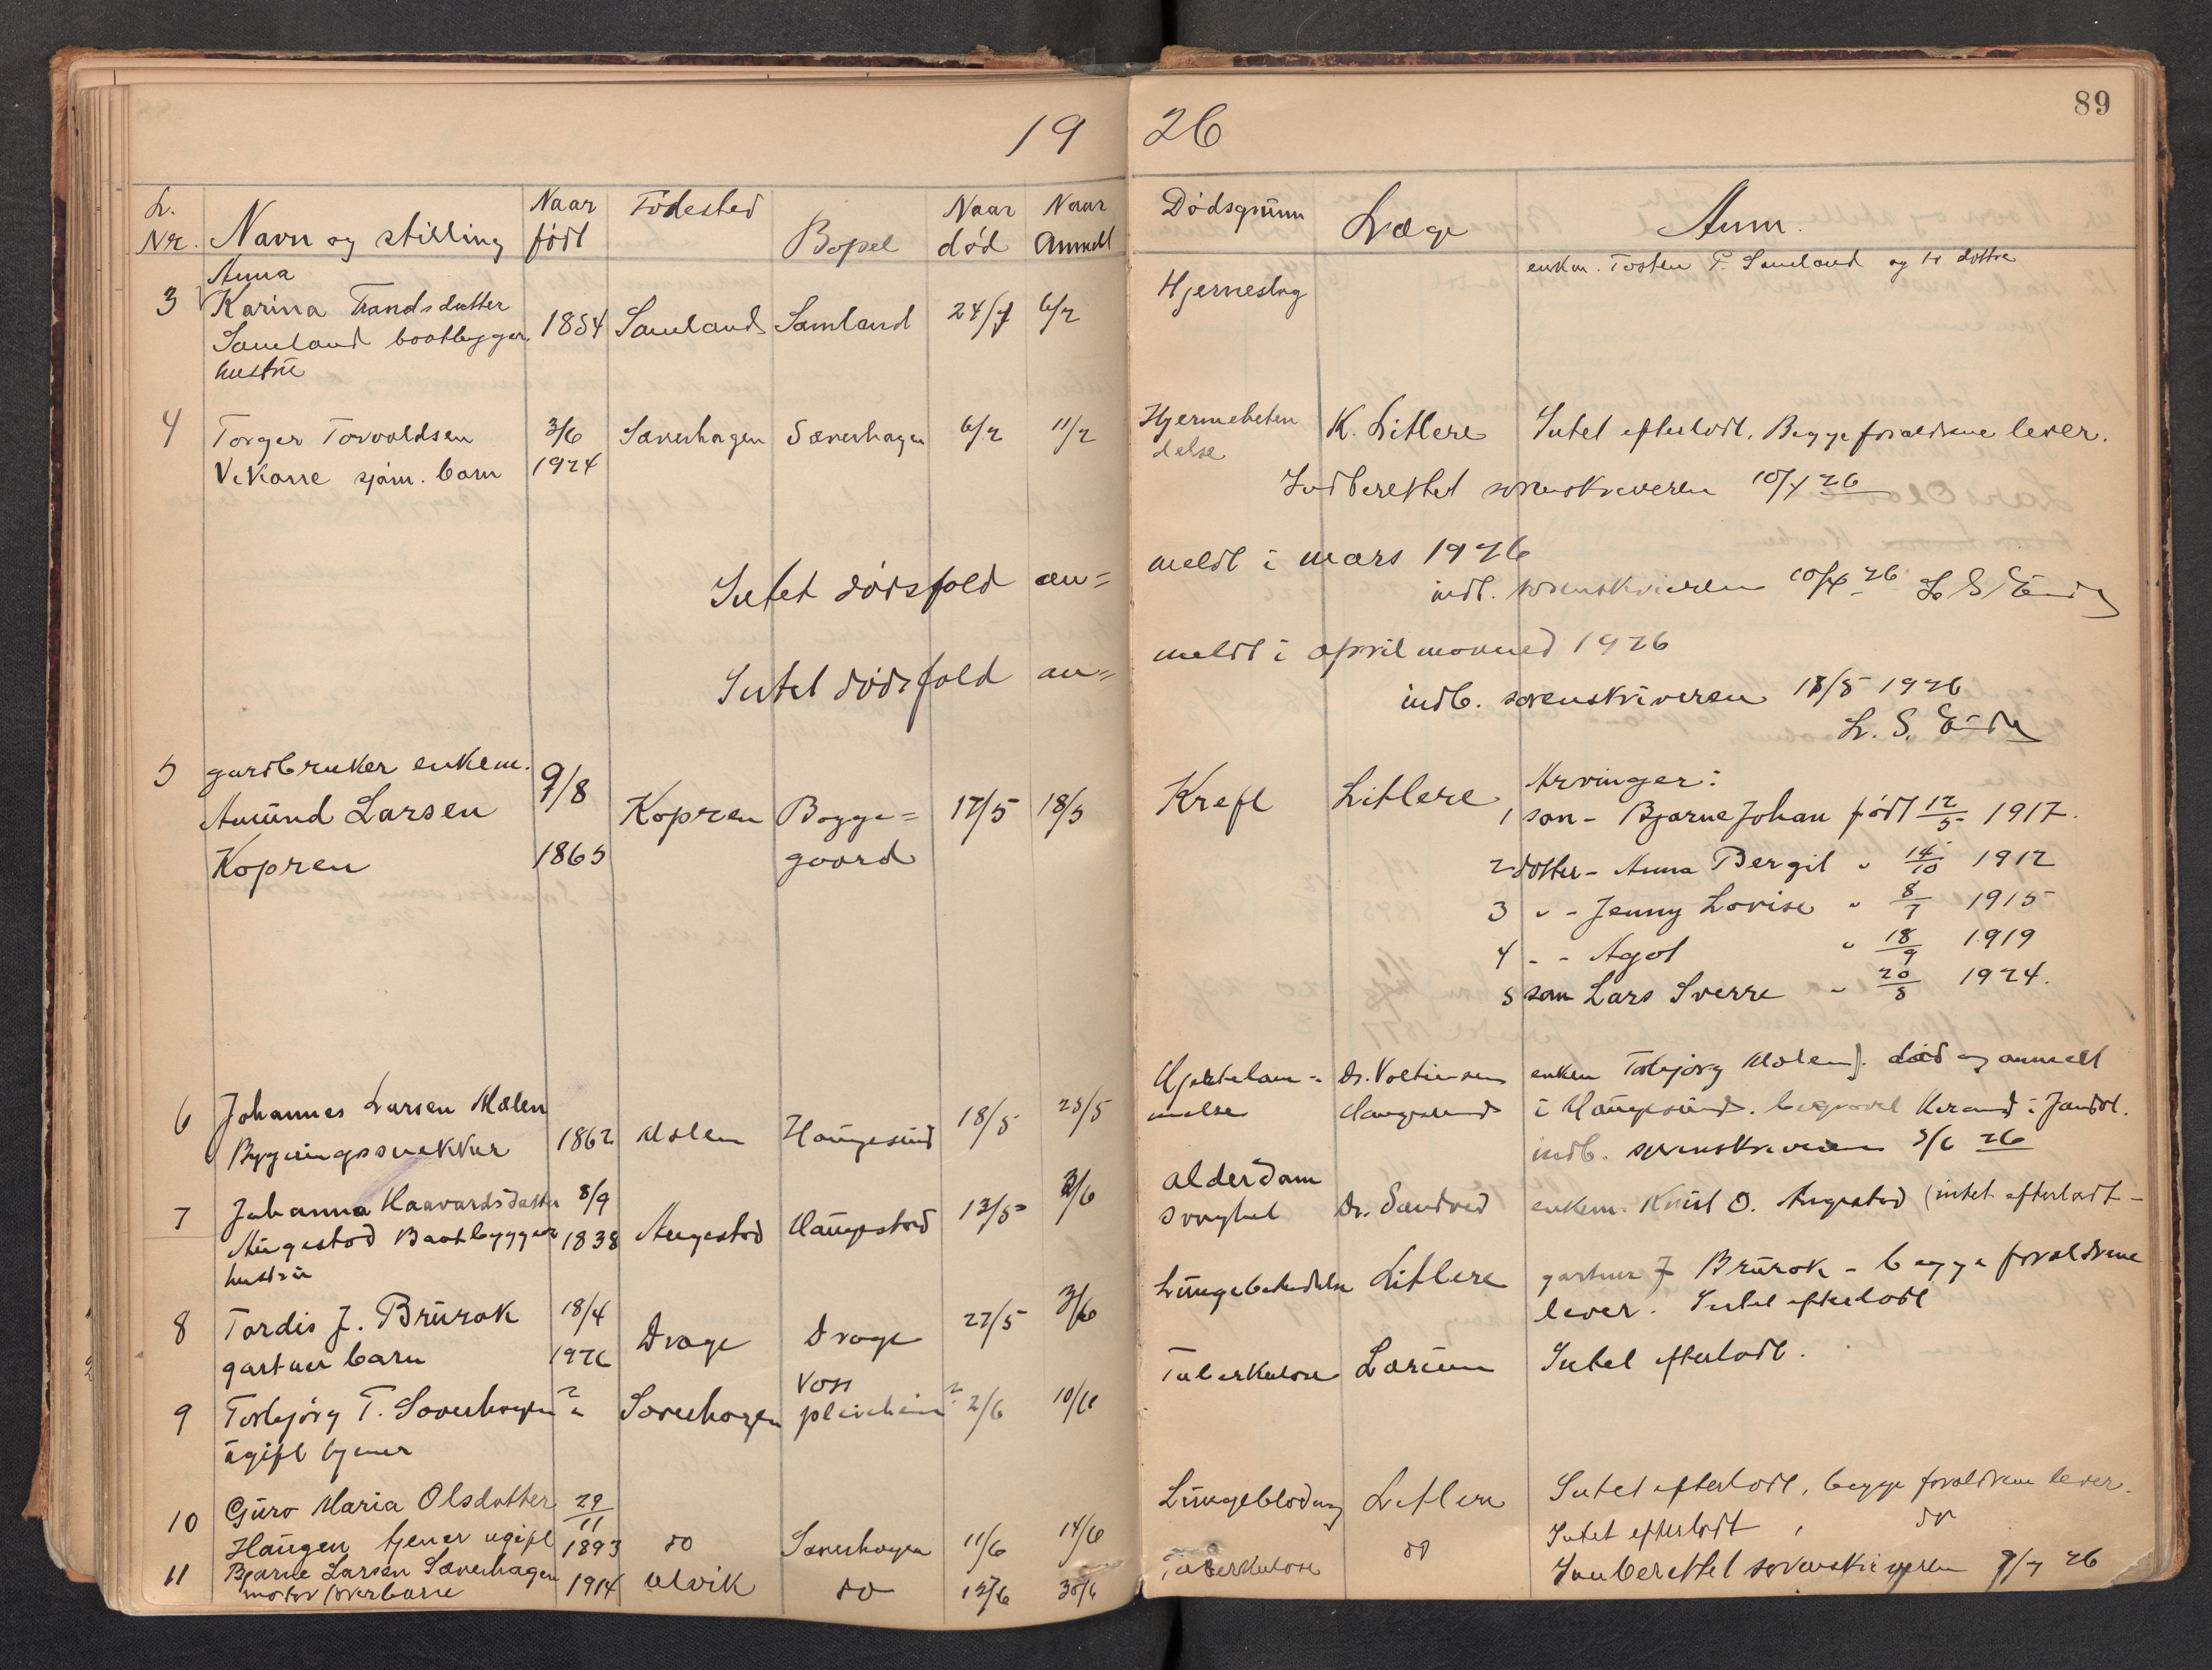 89
19 26
L. Nr. Navn og stilling Naar født Fødested Bopel Naar død Naar Anmeldt Dødsgrunn Læge Anm.
Anna
3 Karina Trandsdatter 1854 Samland Samland 24/1 6/2 Hjerneslag enkm. Tosten P. Samland og 4 døttre
Samland baatbygger
hustru
4 Torger Torvaldsen 3/6 Saverhagen Saverhagen 6/2 11/2 Hjernebeten K. Litlere Intet efterladt. Begge foraldrene lever.
Vikane sjøm. barn 1924 delse
Indberettet sorenskriveren 10/4 26
Intet dødsfald an= meldt i mars 1926
indb. sorenskriveren 10/4 26 L S Eide
Intet dødsfald an= meldt i april maaned 1926
indb. sorenskriveren 18/5 1926
L. S. Eide
5 gardbruker enkem. 9/8 Kreft Litlere Arvinger:
Amund Larsen Kopren Bygge= 17/5 18/5 1 søn - Bjarne Johan født 12/5 1917.
Kopren 1865 gaard 2 dotter - Anna Bergit " 14/10 1912
3 " - Jenny Lovise " 8/7 1915
4 - - Agot " 18/9 1919
5 søn Lars Sverre " 20/5 1924.
6 Johannes Larsen Malen 1862 Malen Haugesund 18/5 25/5 Hjertelam= Dr. enken Torbjørg Malen. død og anmelt
Bygningssnekker melse Haugesund i Haugesund. begravet i Jondal.
indb. sorenskriveren 5/6 26
7 Johanna Haavardsdatter 8/9 Augestad Haugestad 13/5 3/6 alderdom Dr. Sandved enkem. Knut O. Augestad (intet efterladt -
Augestad Baatbygger 1838 svaghet
hustru
8 Tordis J. Brurok 18/4 Drage Drage 27/5 3/6 Lungebetendelse Litlere gartner J Brurok - begge foraldrene
gartner barn 1926 lever. Intet efterladt
9 Torbjørg T. Saverhagen ? Saverhagen Voss pleieheim ? 2/6 10/6 Tuberkulose Larum Intet efterladt.
ugift tjener
10 Guro Maria Olsdotter 29/11 do Saverhagen 11/6 14/6 Lungeblødning Litlere Intet efterladt, begge foraldrene lever.
Haugen tjener ugift 1893
11 Bjarne Larsen Saverhagen 1914 Ulvik do 12/6 30/6 Tuberkulose do Intet efterladt, do
Innberettet sorenskriveren 9/7 26